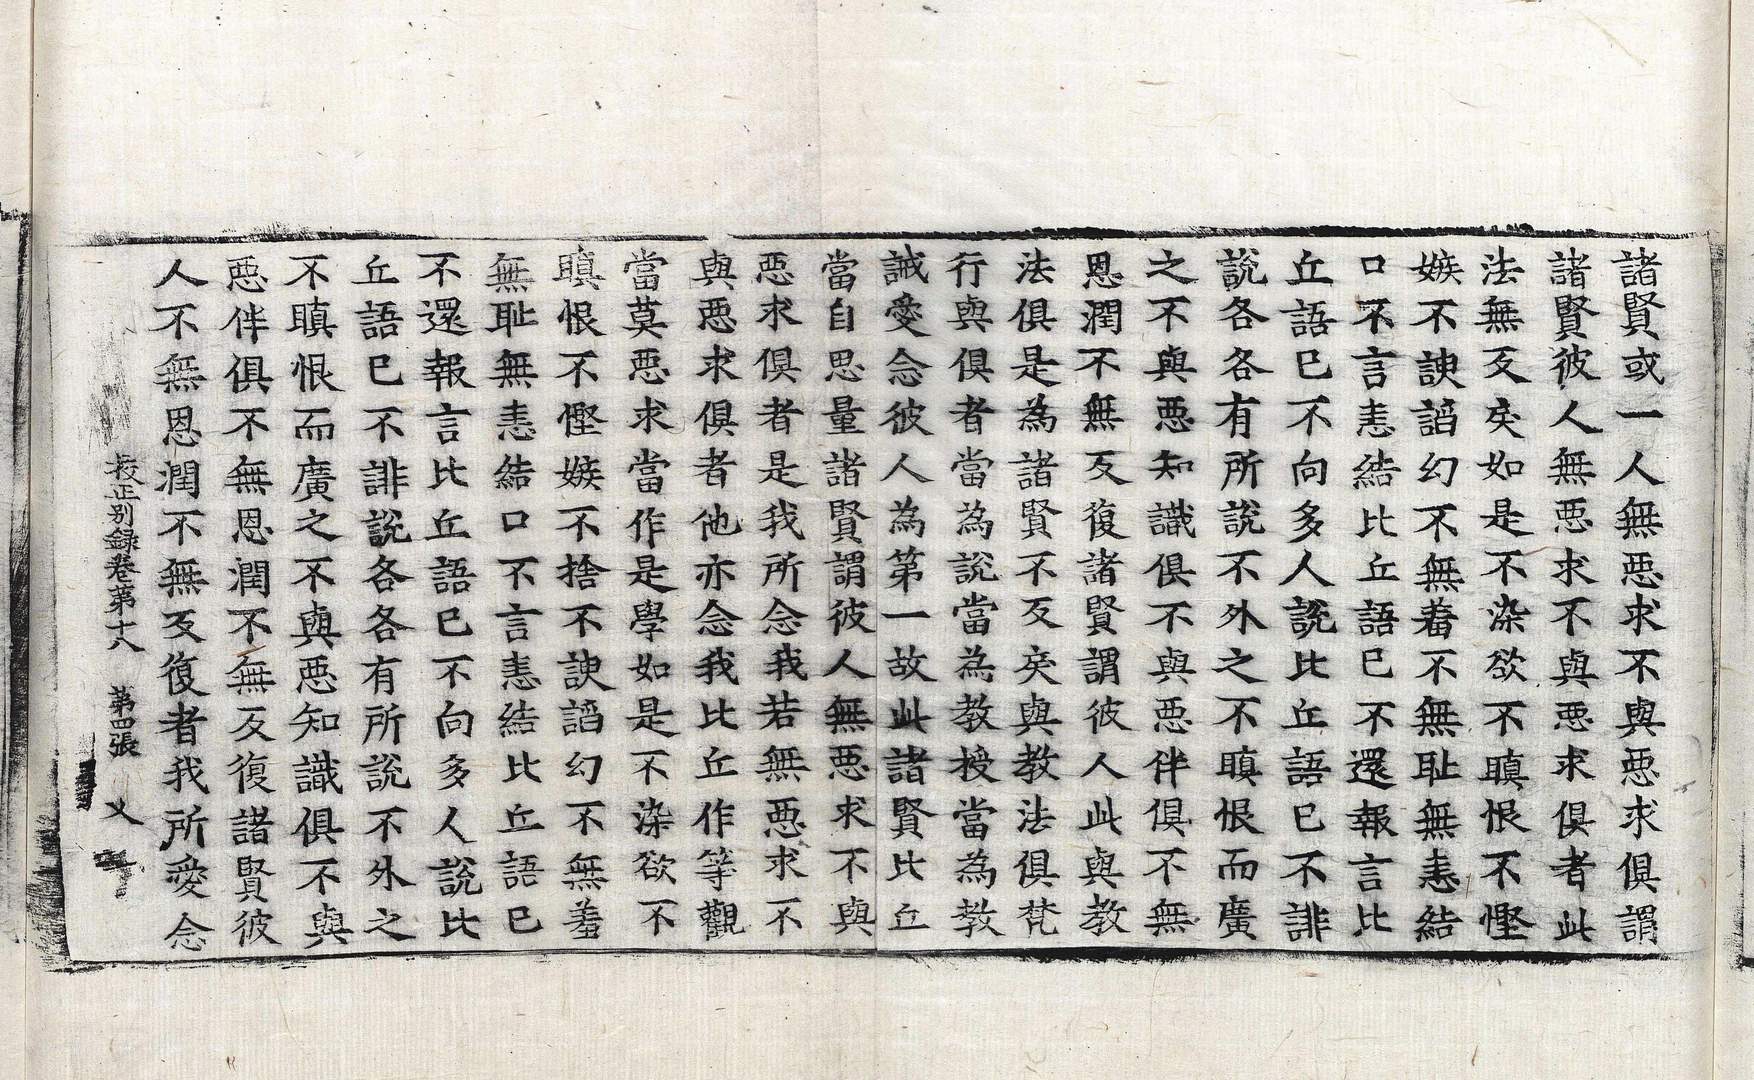 諸賢或一人無惡求不與惡求俱謂
諸賢彼人無惡求不與惡求俱者此
法無反戾如是不染欲不瞋恨不慳
嫉不諛謟幻不無羞不無耻無恚結
口不言恚結比丘語已不還報言比
丘語已不向多人說比丘語已不誹
說各各有所說不外之不瞋恨而廣
之不與惡知識俱不與惡伴俱不無
恩潤不無反復諸賢謂彼人此與教
法俱是為諸賢不反戾與教法俱梵
行與俱者當為說當為教授當為教
誡愛念彼人為第一故此諸賢比丘
當自思量諸賢謂彼人無惡求不與
惡求俱者是我所念我若無惡求不
與惡求俱者他亦念我比丘作等觀
當莫惡求當作是學如是不染欲不
瞋恨不慳嫉不捨不諛謟幻不無羞
無耻無恚結口不言恚結比丘語已
不還報言比丘語已不向多人說比
丘語已不誹說各各有所說不外之
不瞋恨而廣之不與惡知識俱不與
惡伴俱不無恩潤不無反復諸賢彼
人不無恩潤不無反復者我所愛念
挍正別錄卷第十八 第四張 乂